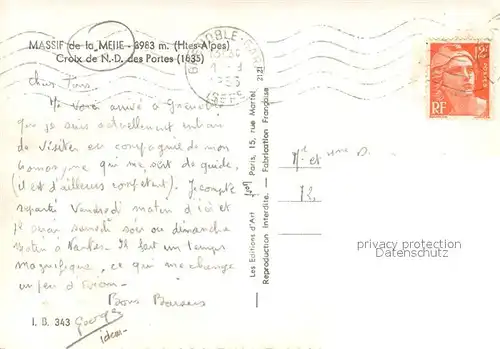 MASSIF de la MEIJE - 3983 m. (Htes-Alpes)
Croix de N.-D. des Portes (1635)
Cher Tous,
Me voici arrivé à Grenoble
que je suis actuellement en train
de visiter en compagnie de mon
qui me sert de guide
(il est d'ailleurs compétent). Je compte
repartir Vendredi matin d'ici et
je serai samedi soir ou dimanche
matin à Nantes. Il fait un temps
magnifique, ce qui me change
un peu d'
Bons Baisers
Georges
I. B. 343
GRENOBLE-GARE
2121
Les Editions d'Art Paris, 15, rue Martel
Reproduction Interdite. - Fabrication Française
POSTES
RF
Mr et Mme D.
72,
copyright delcampe.net